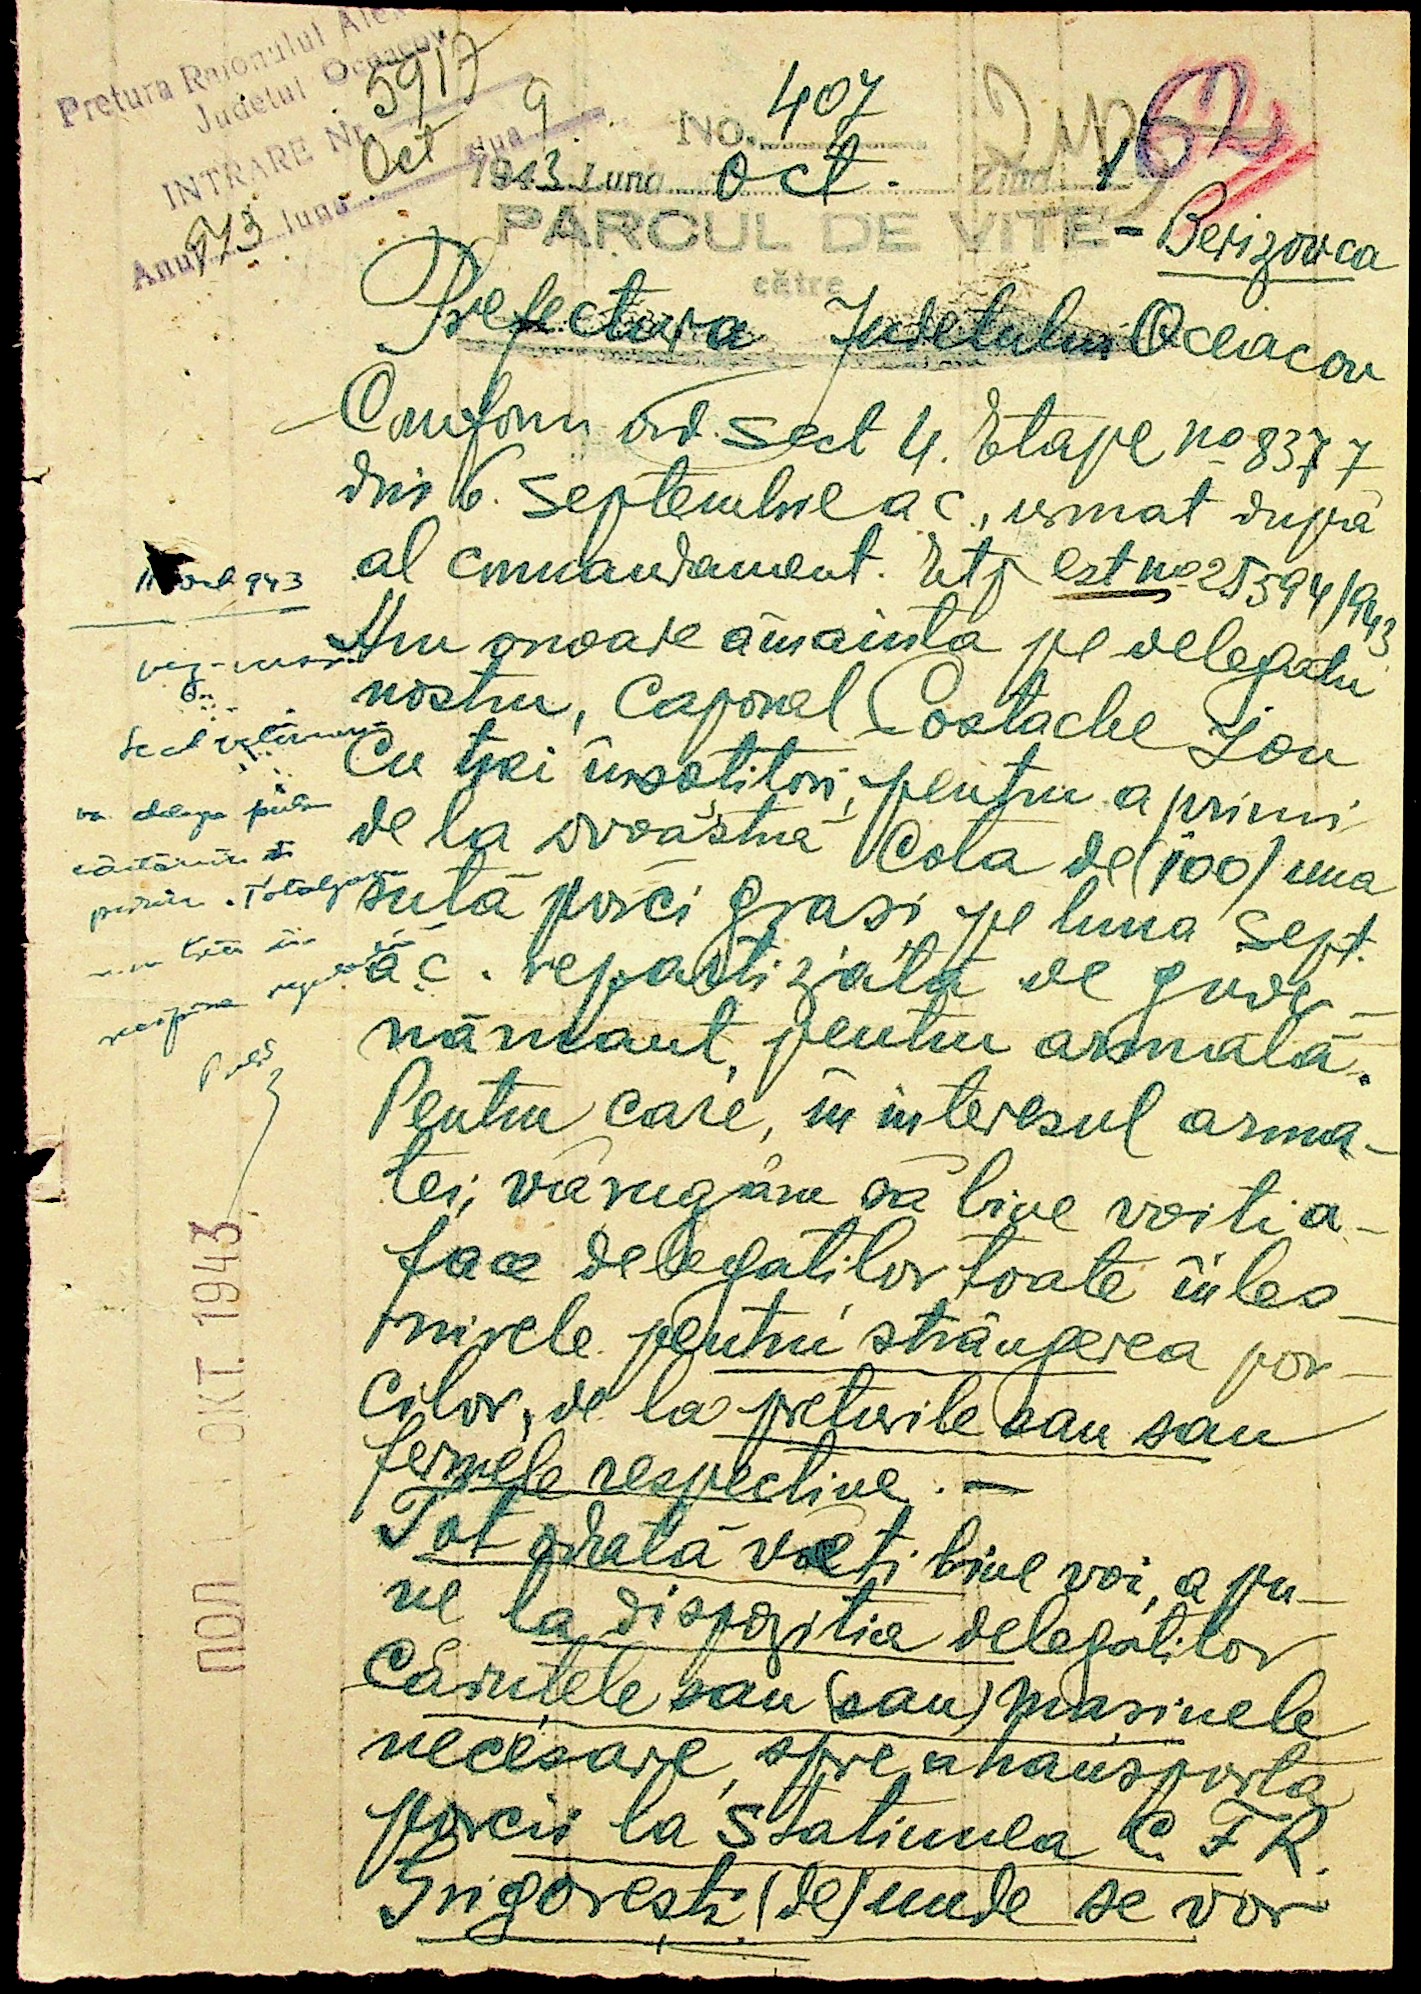 Pretura Raionului Ale
Judetul Oceacov
INTRARE Nr. 5917
Anul 943 luna Oct ziua 9
No. 407
1943 Luna Oct. Ziua 1
62
PARCUL DE VITE - Berizovca
către
Prefectura Judetului Oceacov
Conform ord. Sect 4. Etape no 8377
din 6. Septembrie a c., urmat după
al comandament. Etp est no 25594/943
Am onoare a înainta pe delegatu
nostru, Caporal Costache Ion
Cu trei însotitori, pentru a primi
de la dvoastră Cota de (100) una
sută porci grasi pe luna Sept.
a c. repartizată de guver-
nămant, pentru armată.
Pentru care, în interesul arma-
tei, vă rugăm să bine voiti a-
face delegatilor toate înles-
nirele pentru strângerea por-
cilor, de la preturile sau sau
fermele respective. —
Tot odată veti bine voi, a pu-
ne la dispozitia delegatilor
Căruțele sau (sau) masinele
necesare, spre a transporta
porcii la Statiunea C. F. R.
Grigoresti (de) unde se vor
943
va delega
ПОЛ ОКТ. 1943